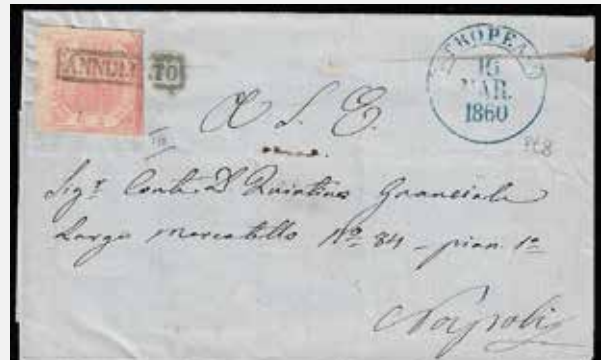 ANNULLATO
16
MAR.
1860
A S. E.
Sigr Conte D. Quintino
Largo Mercatello No 84 - pian. 1o
Napoli